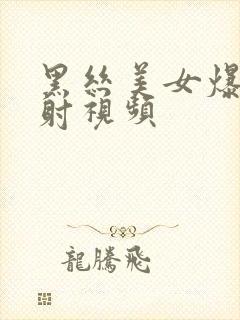 黑丝美女爆
射視頻
龍騰飛